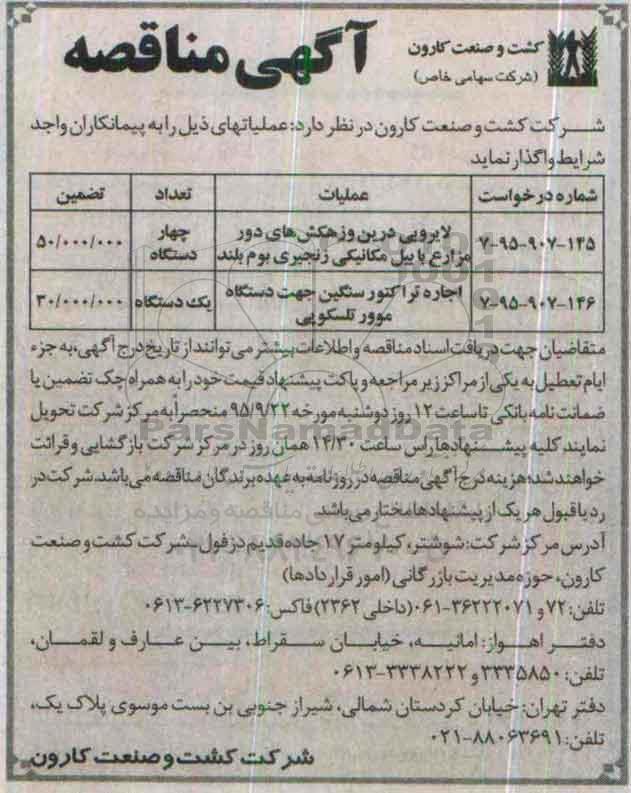 کشت و صنعت کارون
(شرکت سهامی خاص)
آگهی مناقصه
شرکت کشت و صنعت کارون در نظر دارد: عملیاتهای ذیل را به پیمانکاران واجد
شرایط واگذار نماید
شماره درخواست عملیات تعداد تضمین
۷-۹۵-۹۰۷-۱۴۵ لایروبی درین و زهکش‌های دور مزارع با بیل مکانیکی زنجیری بوم بلند چهار دستگاه ۵۰/۰۰۰/۰۰۰
۷-۹۵-۹۰۷-۱۴۶ اجاره تراکتور سنگین جهت دستگاه موور تلسکوپی یک دستگاه ۳۰/۰۰۰/۰۰۰
متقاضیان جهت دریافت اسناد مناقصه و اطلاعات بیشتر می توانند از تاریخ درج آگهی، به جزء
ایام تعطیل به یکی از مراکز زیر مراجعه و پاکت پیشنهاد قیمت خود را به همراه چک تضمین یا
ضمانت نامه بانکی تا ساعت ۱۲ روز دوشنبه مورخه ۹۵/۹/۲۲ منحصراً به مرکز شرکت تحویل
نمایند کلیه پیشنهادها راس ساعت ۱۴/۳۰ همان روز در مرکز شرکت بازگشایی و قرائت
خواهند شد؛ هزینه درج آگهی مناقصه در روزنامه به عهده برندگان مناقصه می باشد. شرکت در
رد یا قبول هر یک از پیشنهادها مختار می باشد.
آدرس مرکز شرکت: شوشتر، کیلومتر ۱۷ جاده قدیم دزفول - شرکت کشت و صنعت
کارون، حوزه مدیریت بازرگانی (امور قراردادها)
تلفن: ۷۲ و ۳۶۲۲۲۰۷۱-۰۶۱ (داخلی ۲۳۶۲) فاکس: ۶۲۲۷۳۰۶-۰۶۱۳
دفتر اهواز: امانیه، خیابان سقراط، بین عارف و لقمان،
تلفن: ۳۳۳۵۸۵۰ و ۳۳۳۸۲۲۲-۰۶۱۳
دفتر تهران: خیابان کردستان شمالی، شیراز جنوبی بن بست موسوی پلاک یک،
تلفن: ۸۸۰۶۳۶۹۱-۰۲۱
شرکت کشت و صنعت کارون
ParsNamadData